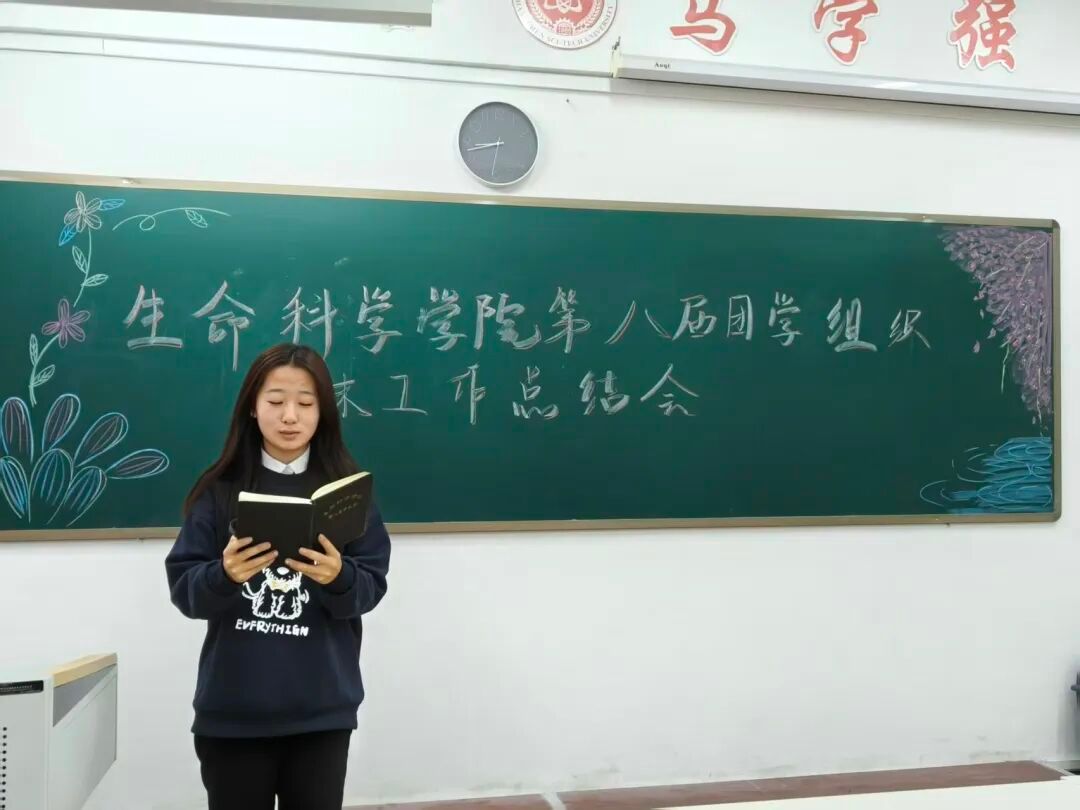 马 学 强
Auqi
生命科学学院第八届团学组织
末工作总结会
EVFRYTHIGN